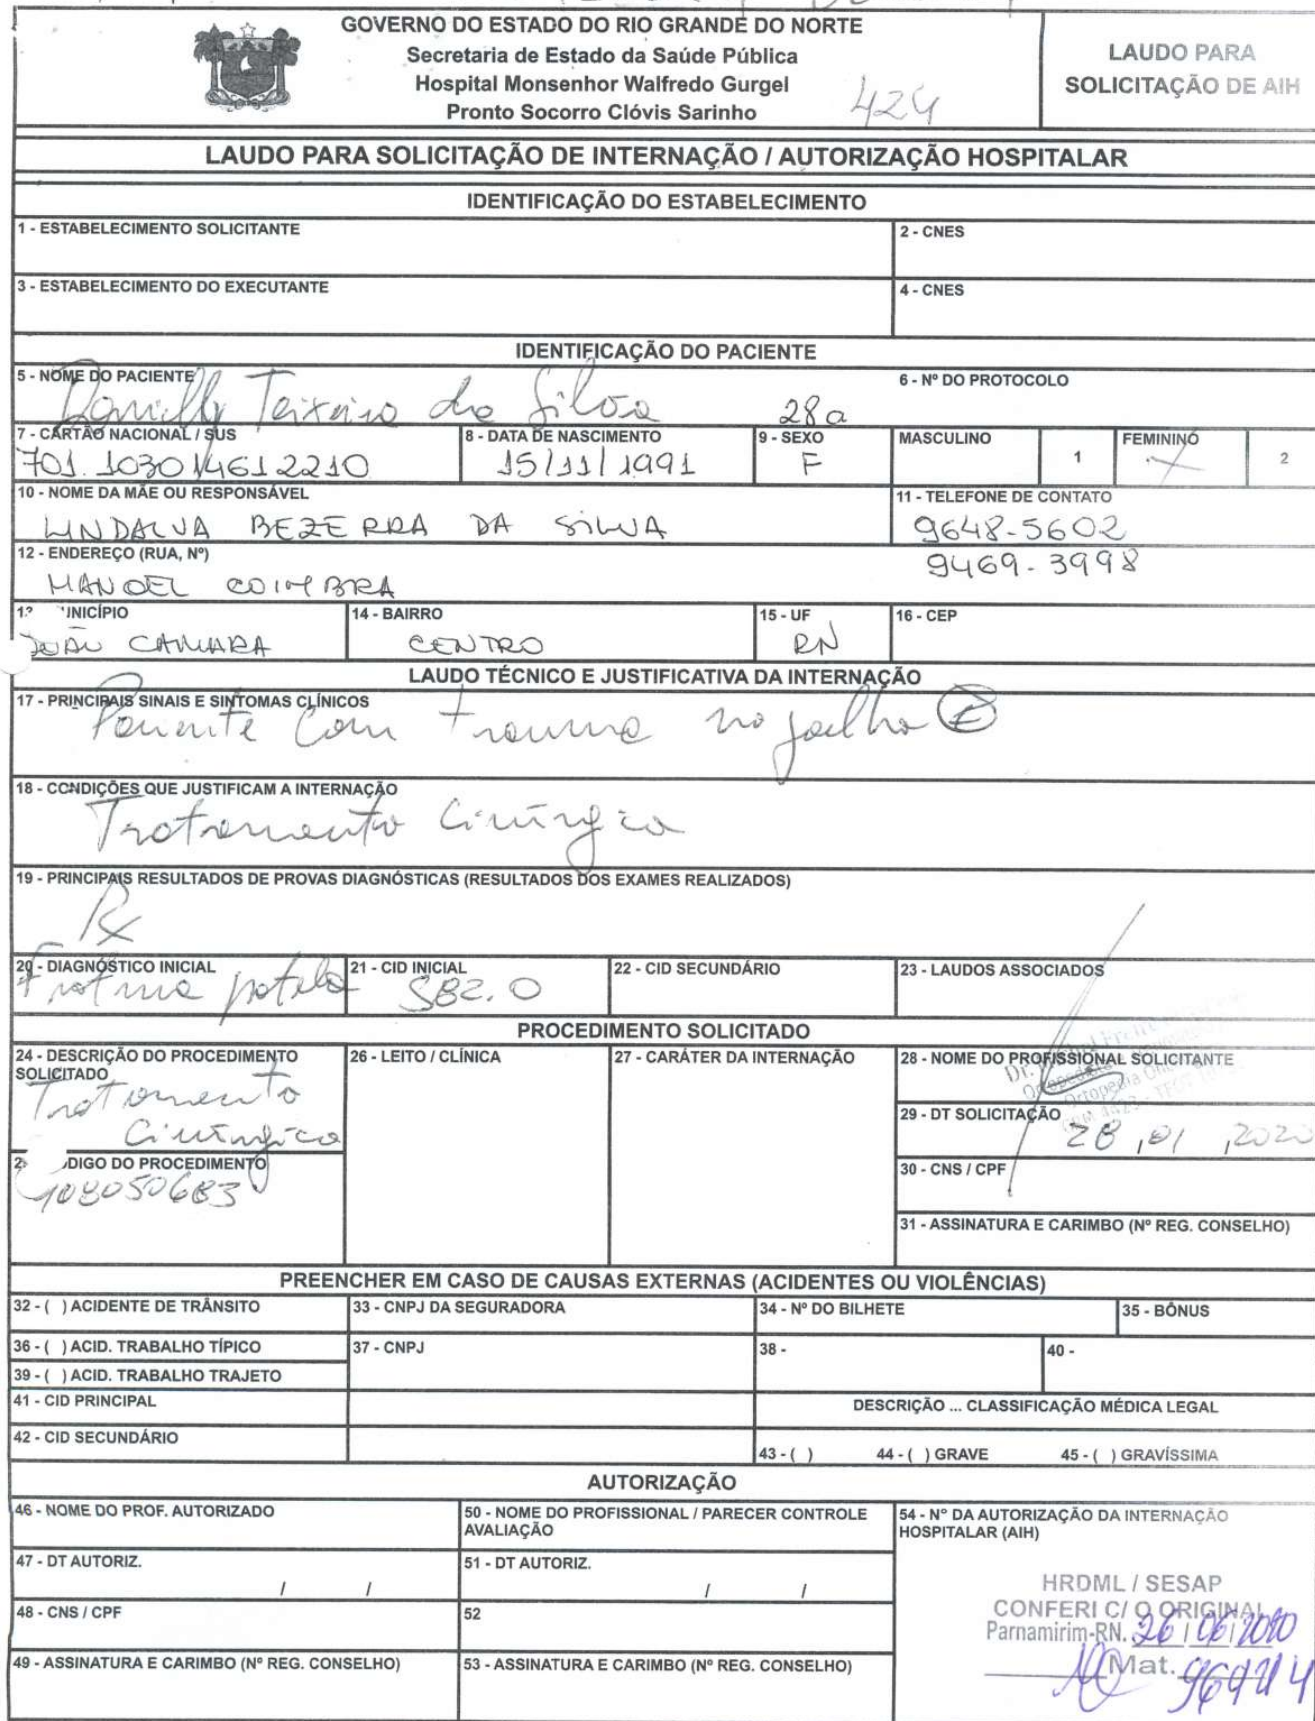 GOVERNO DO ESTADO DO RIO GRANDE DO NORTE
Secretaria de Estado da Saúde Pública
Hospital Monsenhor Walfredo Gurgel
Pronto Socorro Clóvis Sarinho
424
LAUDO PARA
SOLICITAÇÃO DE AIH
LAUDO PARA SOLICITAÇÃO DE INTERNAÇÃO / AUTORIZAÇÃO HOSPITALAR
IDENTIFICAÇÃO DO ESTABELECIMENTO
1 - ESTABELECIMENTO SOLICITANTE
2 - CNES
3 - ESTABELECIMENTO DO EXECUTANTE
4 - CNES
IDENTIFICAÇÃO DO PACIENTE
5 - NOME DO PACIENTE
6 - Nº DO PROTOCOLO
Teixeira da Silva 28a
7 - CARTÃO NACIONAL / SUS
8 - DATA DE NASCIMENTO
9 - SEXO
MASCULINO
1
FEMININO
2
701.103014612210
15/11/1991
F
10 - NOME DA MÃE OU RESPONSÁVEL
11 - TELEFONE DE CONTATO
LINDALVA BEZERRA DA SILVA
9648-5602
12 - ENDEREÇO (RUA, Nº)
9469-3998
MANOEL COIMBRA
UNICÍPIO
14 - BAIRRO
15 - UF
16 - CEP
JOÃO CAMARA
CENTRO
RN
LAUDO TÉCNICO E JUSTIFICATIVA DA INTERNAÇÃO
17 - PRINCIPAIS SINAIS E SINTOMAS CLÍNICOS
Paciente com trauma no joelho E
18 - CONDIÇÕES QUE JUSTIFICAM A INTERNAÇÃO
Tratamento Cirúrgico
19 - PRINCIPAIS RESULTADOS DE PROVAS DIAGNÓSTICAS (RESULTADOS DOS EXAMES REALIZADOS)
Rx
20 - DIAGNÓSTICO INICIAL
21 - CID INICIAL
22 - CID SECUNDÁRIO
23 - LAUDOS ASSOCIADOS
Fratura patela
S82.0
PROCEDIMENTO SOLICITADO
24 - DESCRIÇÃO DO PROCEDIMENTO
SOLICITADO
26 - LEITO / CLÍNICA
27 - CARÁTER DA INTERNAÇÃO
28 - NOME DO PROFISSIONAL SOLICITANTE
Tratamento
Cirúrgico
29 - DT SOLICITAÇÃO
28, 01, 2020
DIGO DO PROCEDIMENTO
30 - CNS / CPF
31 - ASSINATURA E CARIMBO (Nº REG. CONSELHO)
PREENCHER EM CASO DE CAUSAS EXTERNAS (ACIDENTES OU VIOLÊNCIAS)
32 - ( ) ACIDENTE DE TRÂNSITO
33 - CNPJ DA SEGURADORA
34 - Nº DO BILHETE
35 - BÔNUS
36 - ( ) ACID. TRABALHO TÍPICO
37 - CNPJ
38 -
40 -
39 - ( ) ACID. TRABALHO TRAJETO
41 - CID PRINCIPAL
DESCRIÇÃO ... CLASSIFICAÇÃO MÉDICA LEGAL
42 - CID SECUNDÁRIO
43 - ( )
44 - ( ) GRAVE
45 - ( ) GRAVÍSSIMA
AUTORIZAÇÃO
46 - NOME DO PROF. AUTORIZADO
50 - NOME DO PROFISSIONAL / PARECER CONTROLE
AVALIAÇÃO
54 - Nº DA AUTORIZAÇÃO DA INTERNAÇÃO
HOSPITALAR (AIH)
47 - DT AUTORIZ.
/ /
51 - DT AUTORIZ.
/ /
48 - CNS / CPF
52
HRDML / SESAP
CONFERI C/ O ORIGINAL
Parnamirim-RN. 26/06/2020
Mat.
49 - ASSINATURA E CARIMBO (Nº REG. CONSELHO)
53 - ASSINATURA E CARIMBO (Nº REG. CONSELHO)